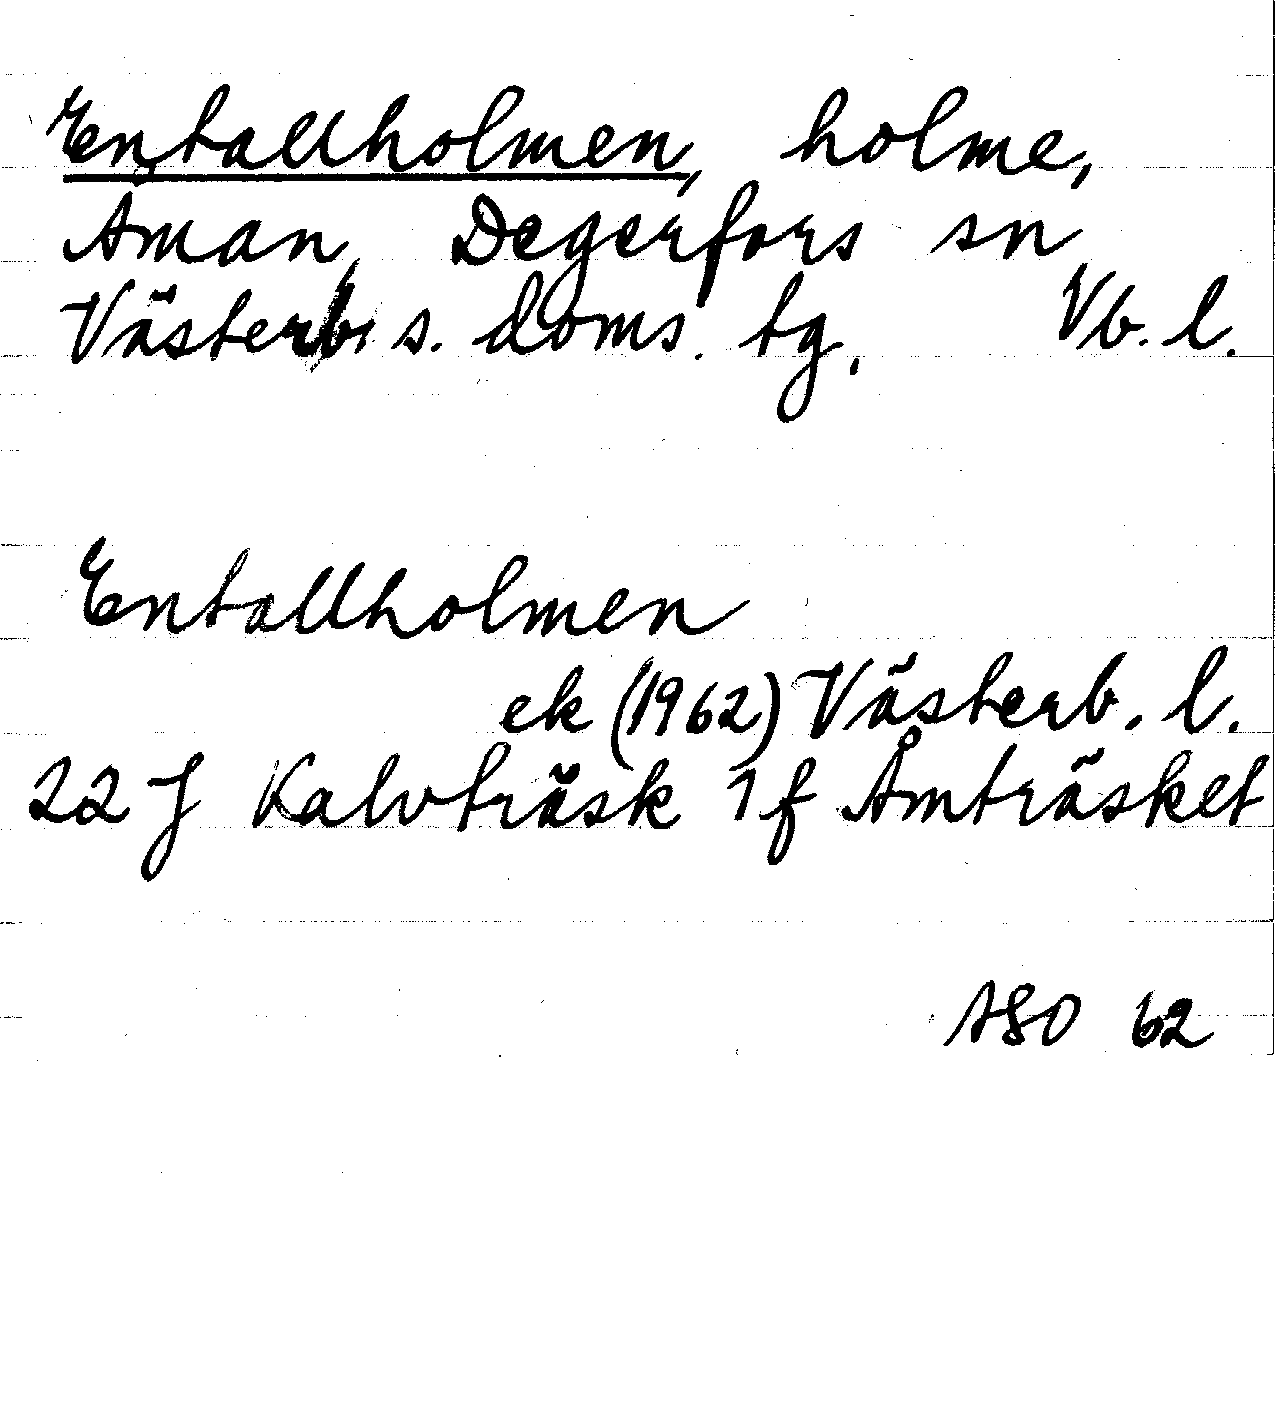 Entallholmen, holme,
Åman, Degerfors sn
Västerb. s. doms. tg. Vb. l.
Entallholmen
ek (1962) Västerb. l.
22 J Kalvträsk 1 f Åmträsket
ASO 62